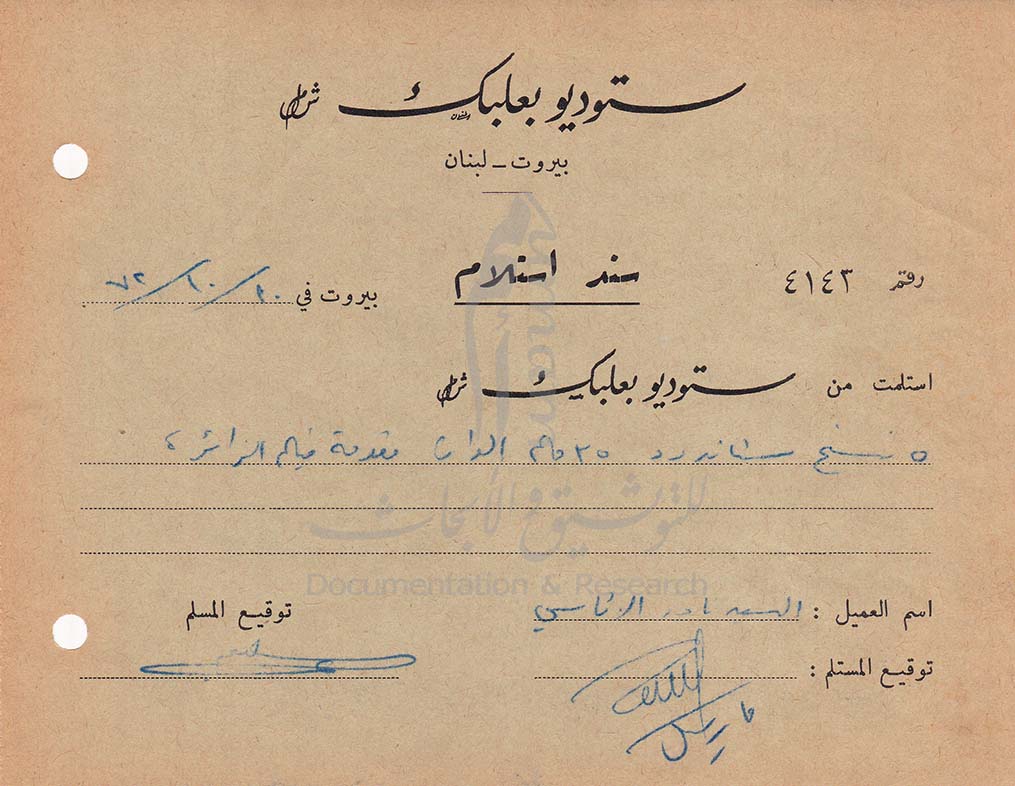 ستوديو بعلبك ش م ل
بيروت ـ لبنان
رقم ٤١٤٣
سند استلام
بيروت في ٢٠/١٠/٧٢
استلمت من ستوديو بعلبك ش م ل
٥ نسخ ستاندرد ٣٥ ملم الوان مقدمة فيلم الزائرة
اسم العميل : السيد نادر الاتاسي
توقيع المسلم
توقيع المستلم :
للتوثيق والأبحاث
Documentation & Research